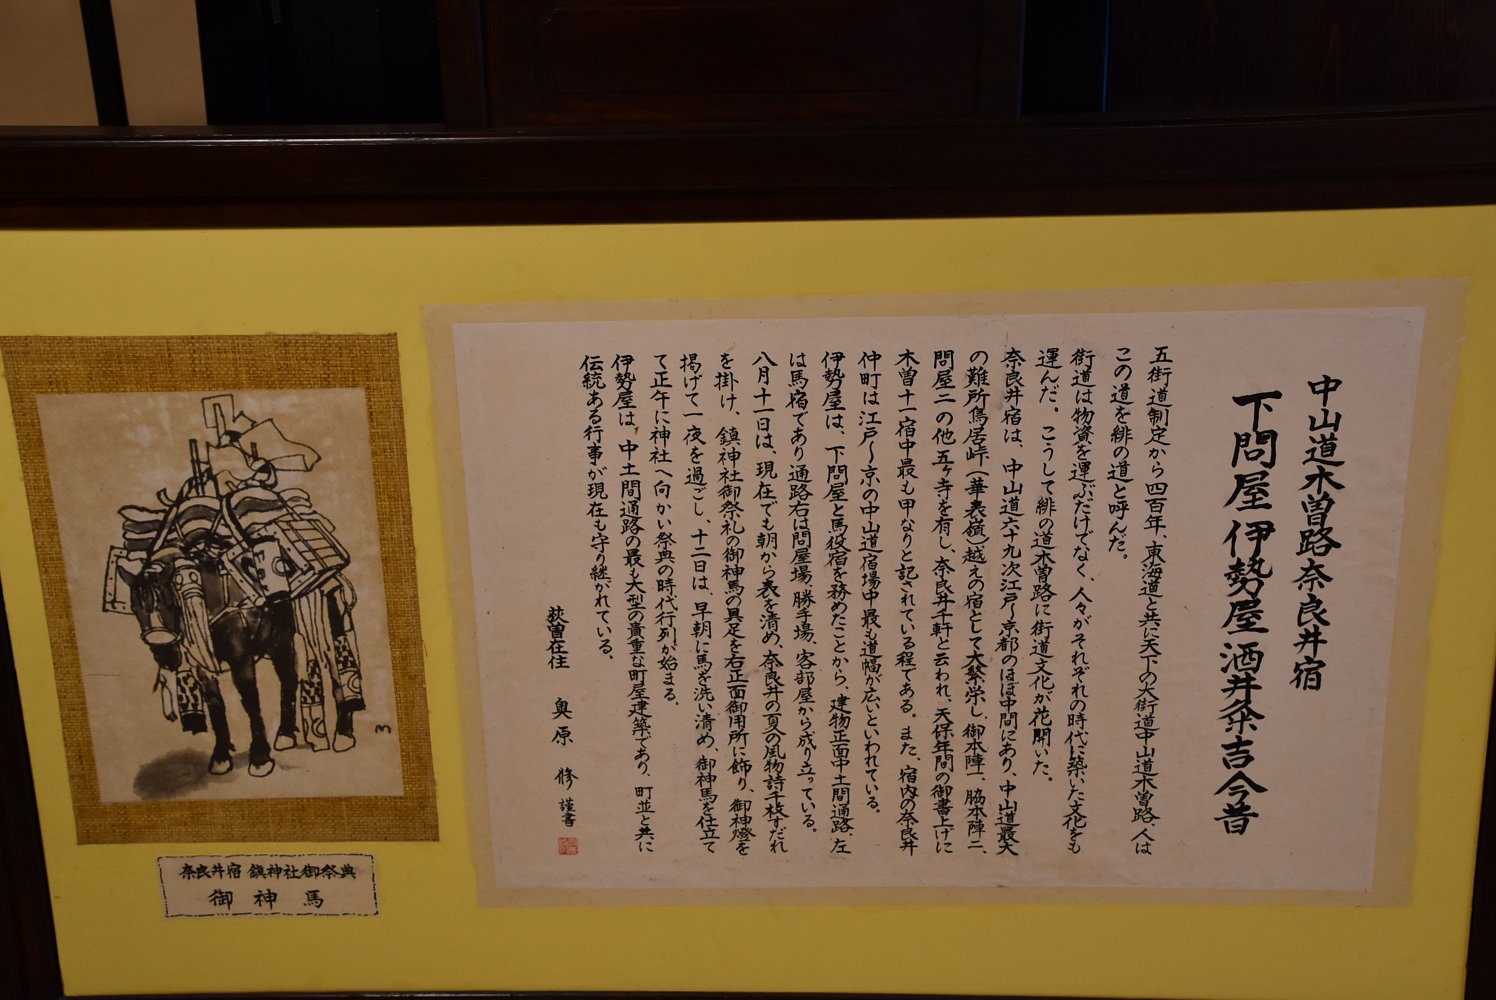 中山道木曽路奈良井宿
下問屋 伊勢屋 酒井粂吉今昔
五街道制定から四百年、東海道と共に天下の大街道中山道木曽路、人は
この道を緋の道と呼んだ。
街道は物資を運ぶだけでなく、人々がそれぞれの時代に築いた文化をも
運んだ。こうして緋の道木曽路に街道文化が花開いた。
奈良井宿は、中山道六十九次江戸〜京都のほぼ中間にあり、中山道最大
の難所鳥居峠(華表嶺)越えの宿として大繁栄し、御本陣一、脇本陣二、
問屋二の他五ヶ寺を有し、奈良井千軒と云われ、天保年間の御書上げに
木曽十一宿中最も甲なりと記されている程である。また、宿内の奈良井
仲町は江戸〜京の中山道宿場中最も道幅が広いといわれている。
伊勢屋は、下問屋と馬役宿を務めたことから、建物正面中土間通路、左
は馬宿であり通路右は問屋場、勝手場、客部屋から成り立っている。
八月十一日は、現在でも朝から表を清め、奈良井の夏の風物詩千枚すだれ
を掛け、鎮神社御祭礼の御神馬の具足を右正面御用所に飾り、御神燈を
掲げて一夜を過ごし、十二日は、早朝に馬を洗い清め、御神馬を仕立て
て正午に神社へ向かい祭典の時代行列が始まる。
伊勢屋は、中土間通路の最も大型の貴重な町屋建築であり、町並と共に
伝統ある行事が現在も守り継がれている。
荻曽在住 奥原 修 謹書
奈良井宿 鎮神社御祭典
御神馬